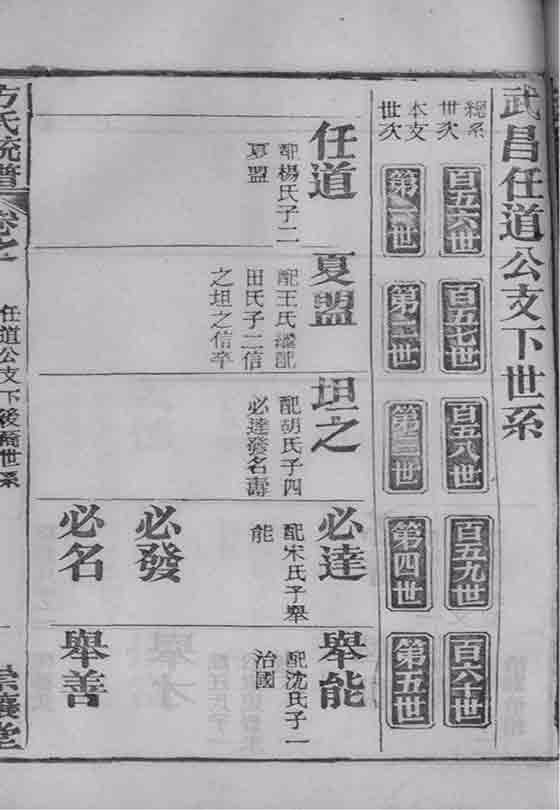 武昌任道公支下世系
總系世次
百五六世
百五七世
百五八世
百五九世
百六十世
本支世次
第一世
第二世
第三世
第四世
第五世
任道
配楊氏子二
夏盟
夏盟
配王氏繼配
田氏子二信
之坦之信卒
坦之
配胡氏子四
必達發名壽
必達
配宋氏子舉
能
必發
必名
舉能
配沈氏子一
治國
舉善
方氏統譜
卷之
任道公支下後裔世系